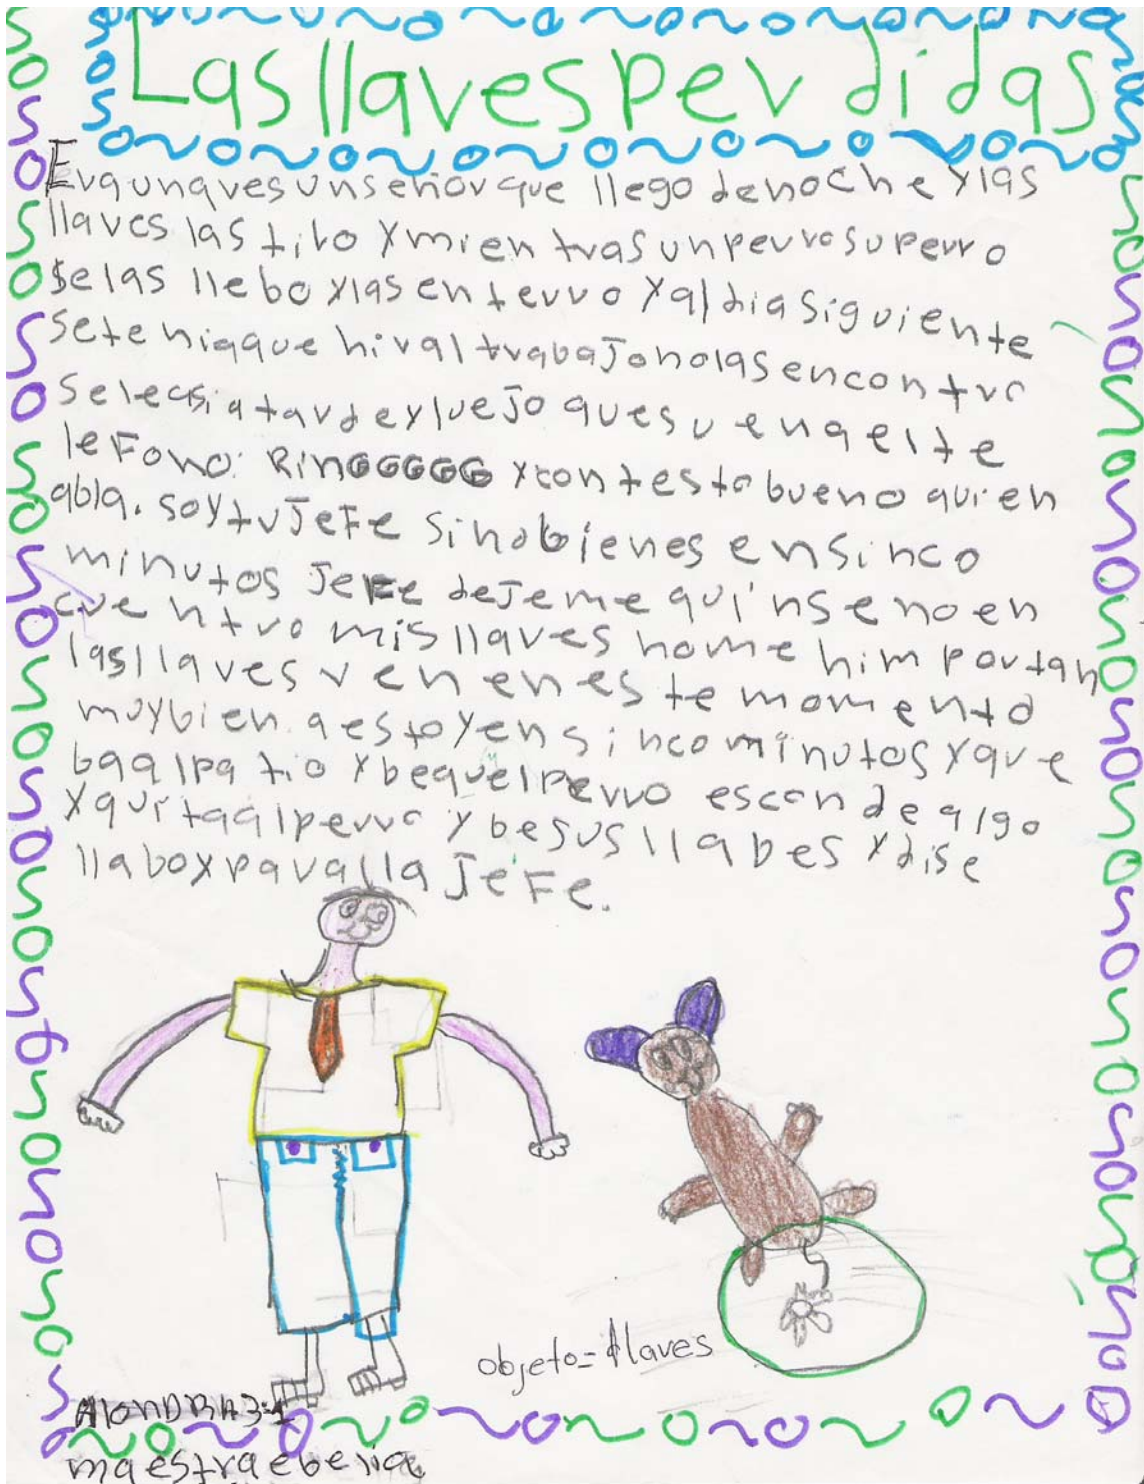 Las llaves perdidas
Era unaves unseñor que llego denoche y las
llaves las tiro y mientras unperro superro
Selas llebo ylas enterro y aldia siguiente
Seteniaque hiral trabajo nolas encontro
Selecsia tarde y luejo quesuena elte
leFono: RinGGGGG y contesto bueno quien
abla. soy tu JeFe sinobienes ensinco
minutos JeFe deJeme quinseno en
cuentro mis llaves nome himportan
lasllaves ven en este momento
muybien aestoy en sinco minutos yque
baalpatio y bequelperro esconde algo
yquitaalperro y besus llabes ydise
llaboy paralla JeFe.
objeto= llaves
AlONDRA 3-1
maestra ebelia